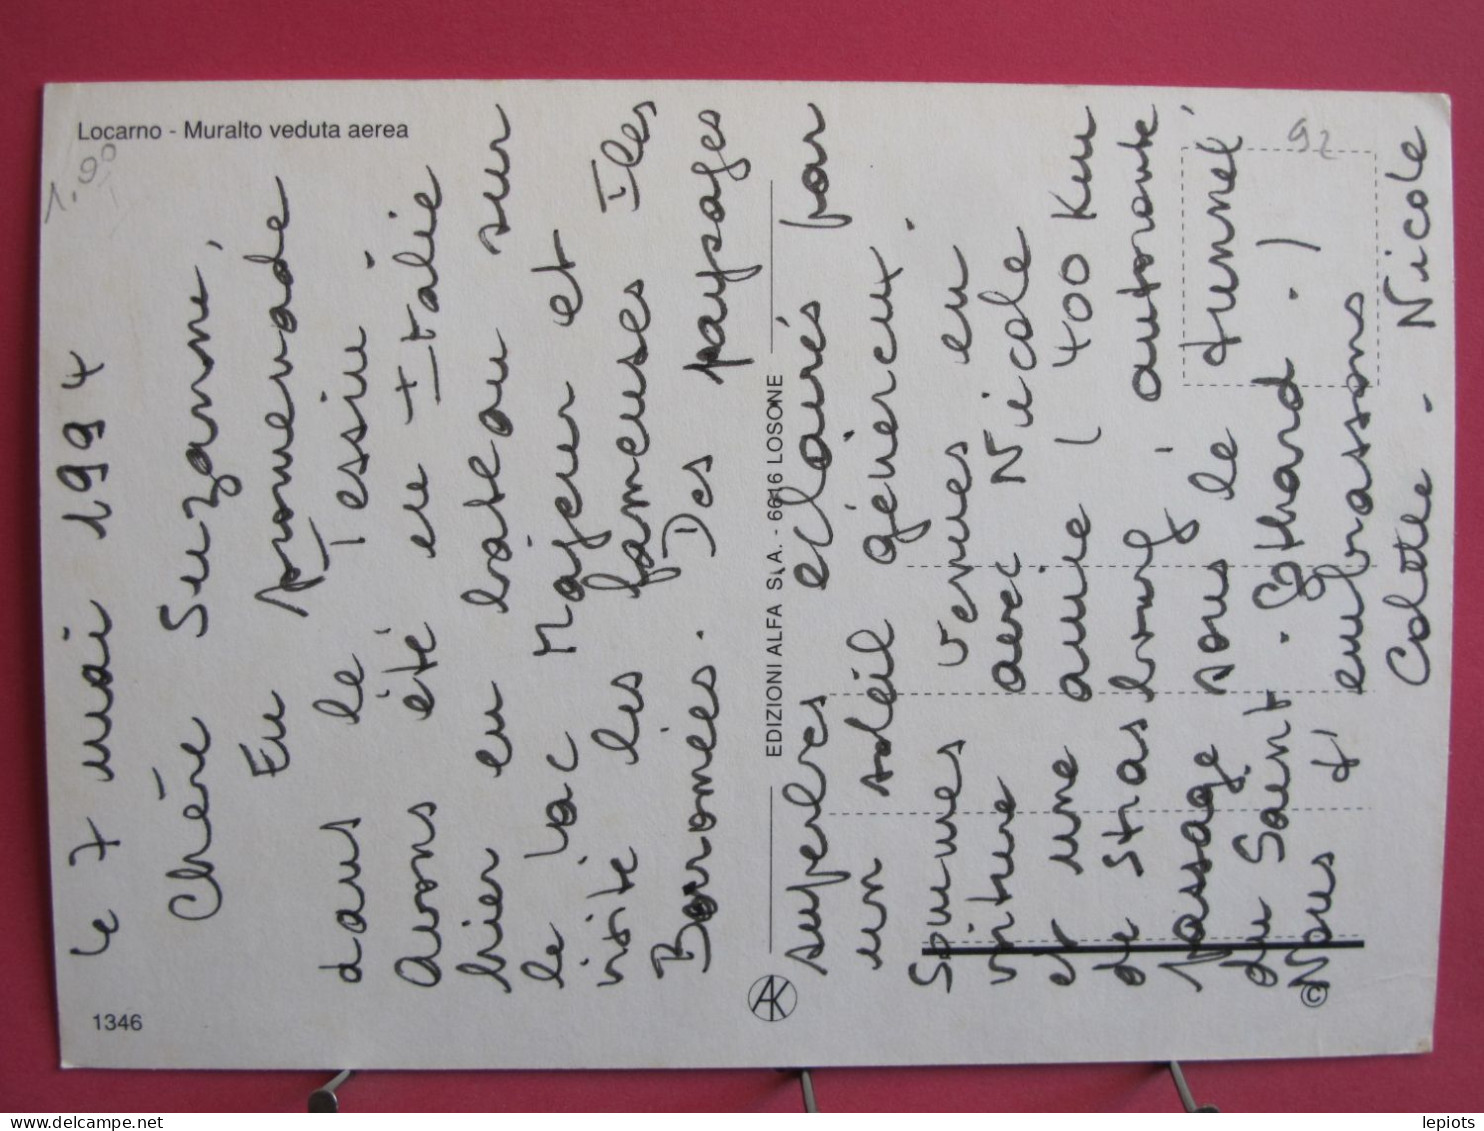 Locarno - Muralto veduta aerea
1.90
92
le 7 mai 1994
Chère Suzanne,
En promenade
dans le Tessin
Avons été en Italie
hier en bateau sur
le lac Majeur et
visité les fameuses Iles
Borromées. Des paysages
superbes éclairés par
un soleil généreux.
Sommes venues en
voiture avec Nicole
et une amie / 400 Km
de Strasbourg, autoroute
passage sous le tunnel
du Saint-Gothard. /
Nous t'embrassons
Colette - Nicole
EDIZIONI ALFA S.A. - 6616 LOSONE
AK
©
1346
www.delcampe.net
lepiots